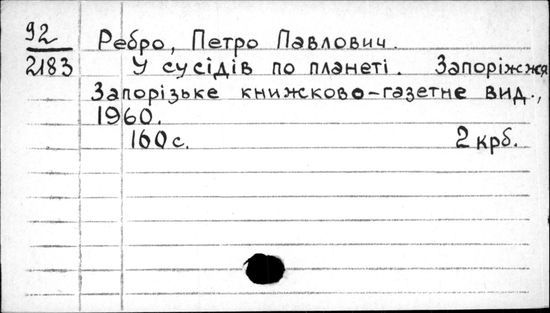 92
2183
Ребро, Петро Павлович.
У сусідів по планеті. Запоріжжя
Запорізьке книжково-газетне вид.,
1960.
160 с. 2 крб.